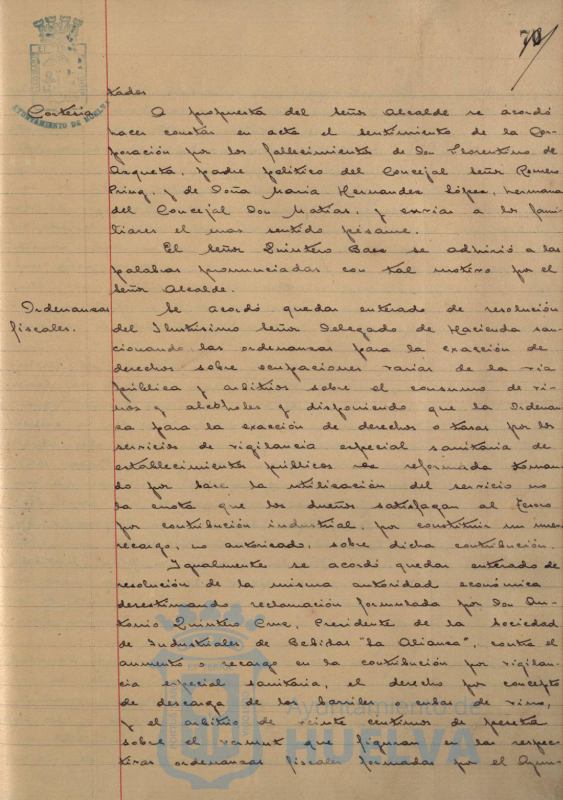 70
AYUNTAMIENTO DE HUELVA
tados
Cortesia
A propuesta del Señor Alcalde se acordó
hacer constar en acta el sentimiento de la Cor-
poración por los fallecimientos de Don Florentino de
Azqueta, padre político del Concejal Señor Romero
y de Doña Maria Hernandez López, hermana
del Concejal Don Matias, y enviar a los fami-
liares el mas sentido pésame.
El Señor Quintero Baez se adhirió a las
palabras pronunciadas con tal motivo por el
Señor Alcalde.
Ordenanzas
fiscales.
Se acordó quedar enterado de resolución
del Ilustrisimo Señor Delegado de Hacienda san-
cionando las ordenanzas para la exacción de
derechos sobre ocupaciones varias de la via
pública y arbitrios sobre el consumo de vi-
nos y alcoholes y disponiendo que la Ordenan-
za para la exacción de derechos o tasas por los
servicios de vigilancia especial sanitaria de
establecimientos públicos sea reformada toman-
do por base la utilización del servicio no
la cuota que los dueños satisfagan al Tesoro
por contribución industrial, por constituir un
recargo, no autorizado, sobre dicha contribución.
Igualmente se acordó quedar enterado de
resolución de la misma autoridad económica
desestimando reclamación formulada por Don An-
tonio Quintero Cruz, Presidente de la Sociedad
de Industriales de Bebidas "La Alianza", contra el
aumento o recargo en la contribución por vigilan-
cia especial sanitaria, el derecho por concepto
de descarga de los barriles o cubas de vino,
y el arbitrio de veinte centimos de peseta
sobre el vermut que figuran en la respec-
tivas ordenanzas fiscales formadas por el Ayun-
Ayuntamiento de
HUELVA